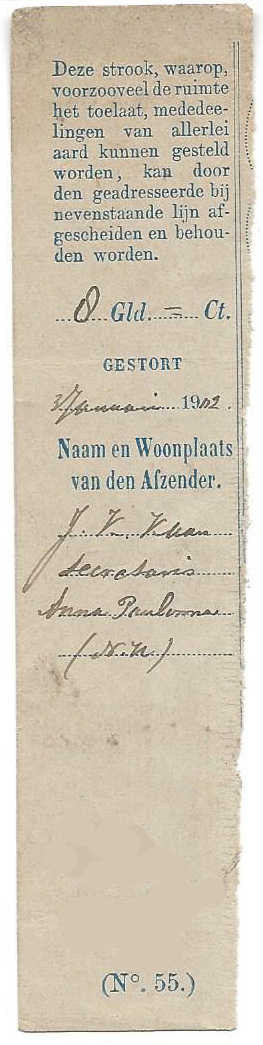 Deze strook, waarop,
voorzooveel de ruimte
het toelaat, mededee-
lingen van allerlei
aard kunnen gesteld
worden, kan door
den geadresseerde bij
nevenstaande lijn af-
gescheiden en behou-
den worden.
8 Gld. = Ct.
GESTORT
3 Januari 1902.
Naam en Woonplaats
van den Afzender.
J. K.
Secretaris
Anna Paulowna
(N.H.)
(N°. 55.)